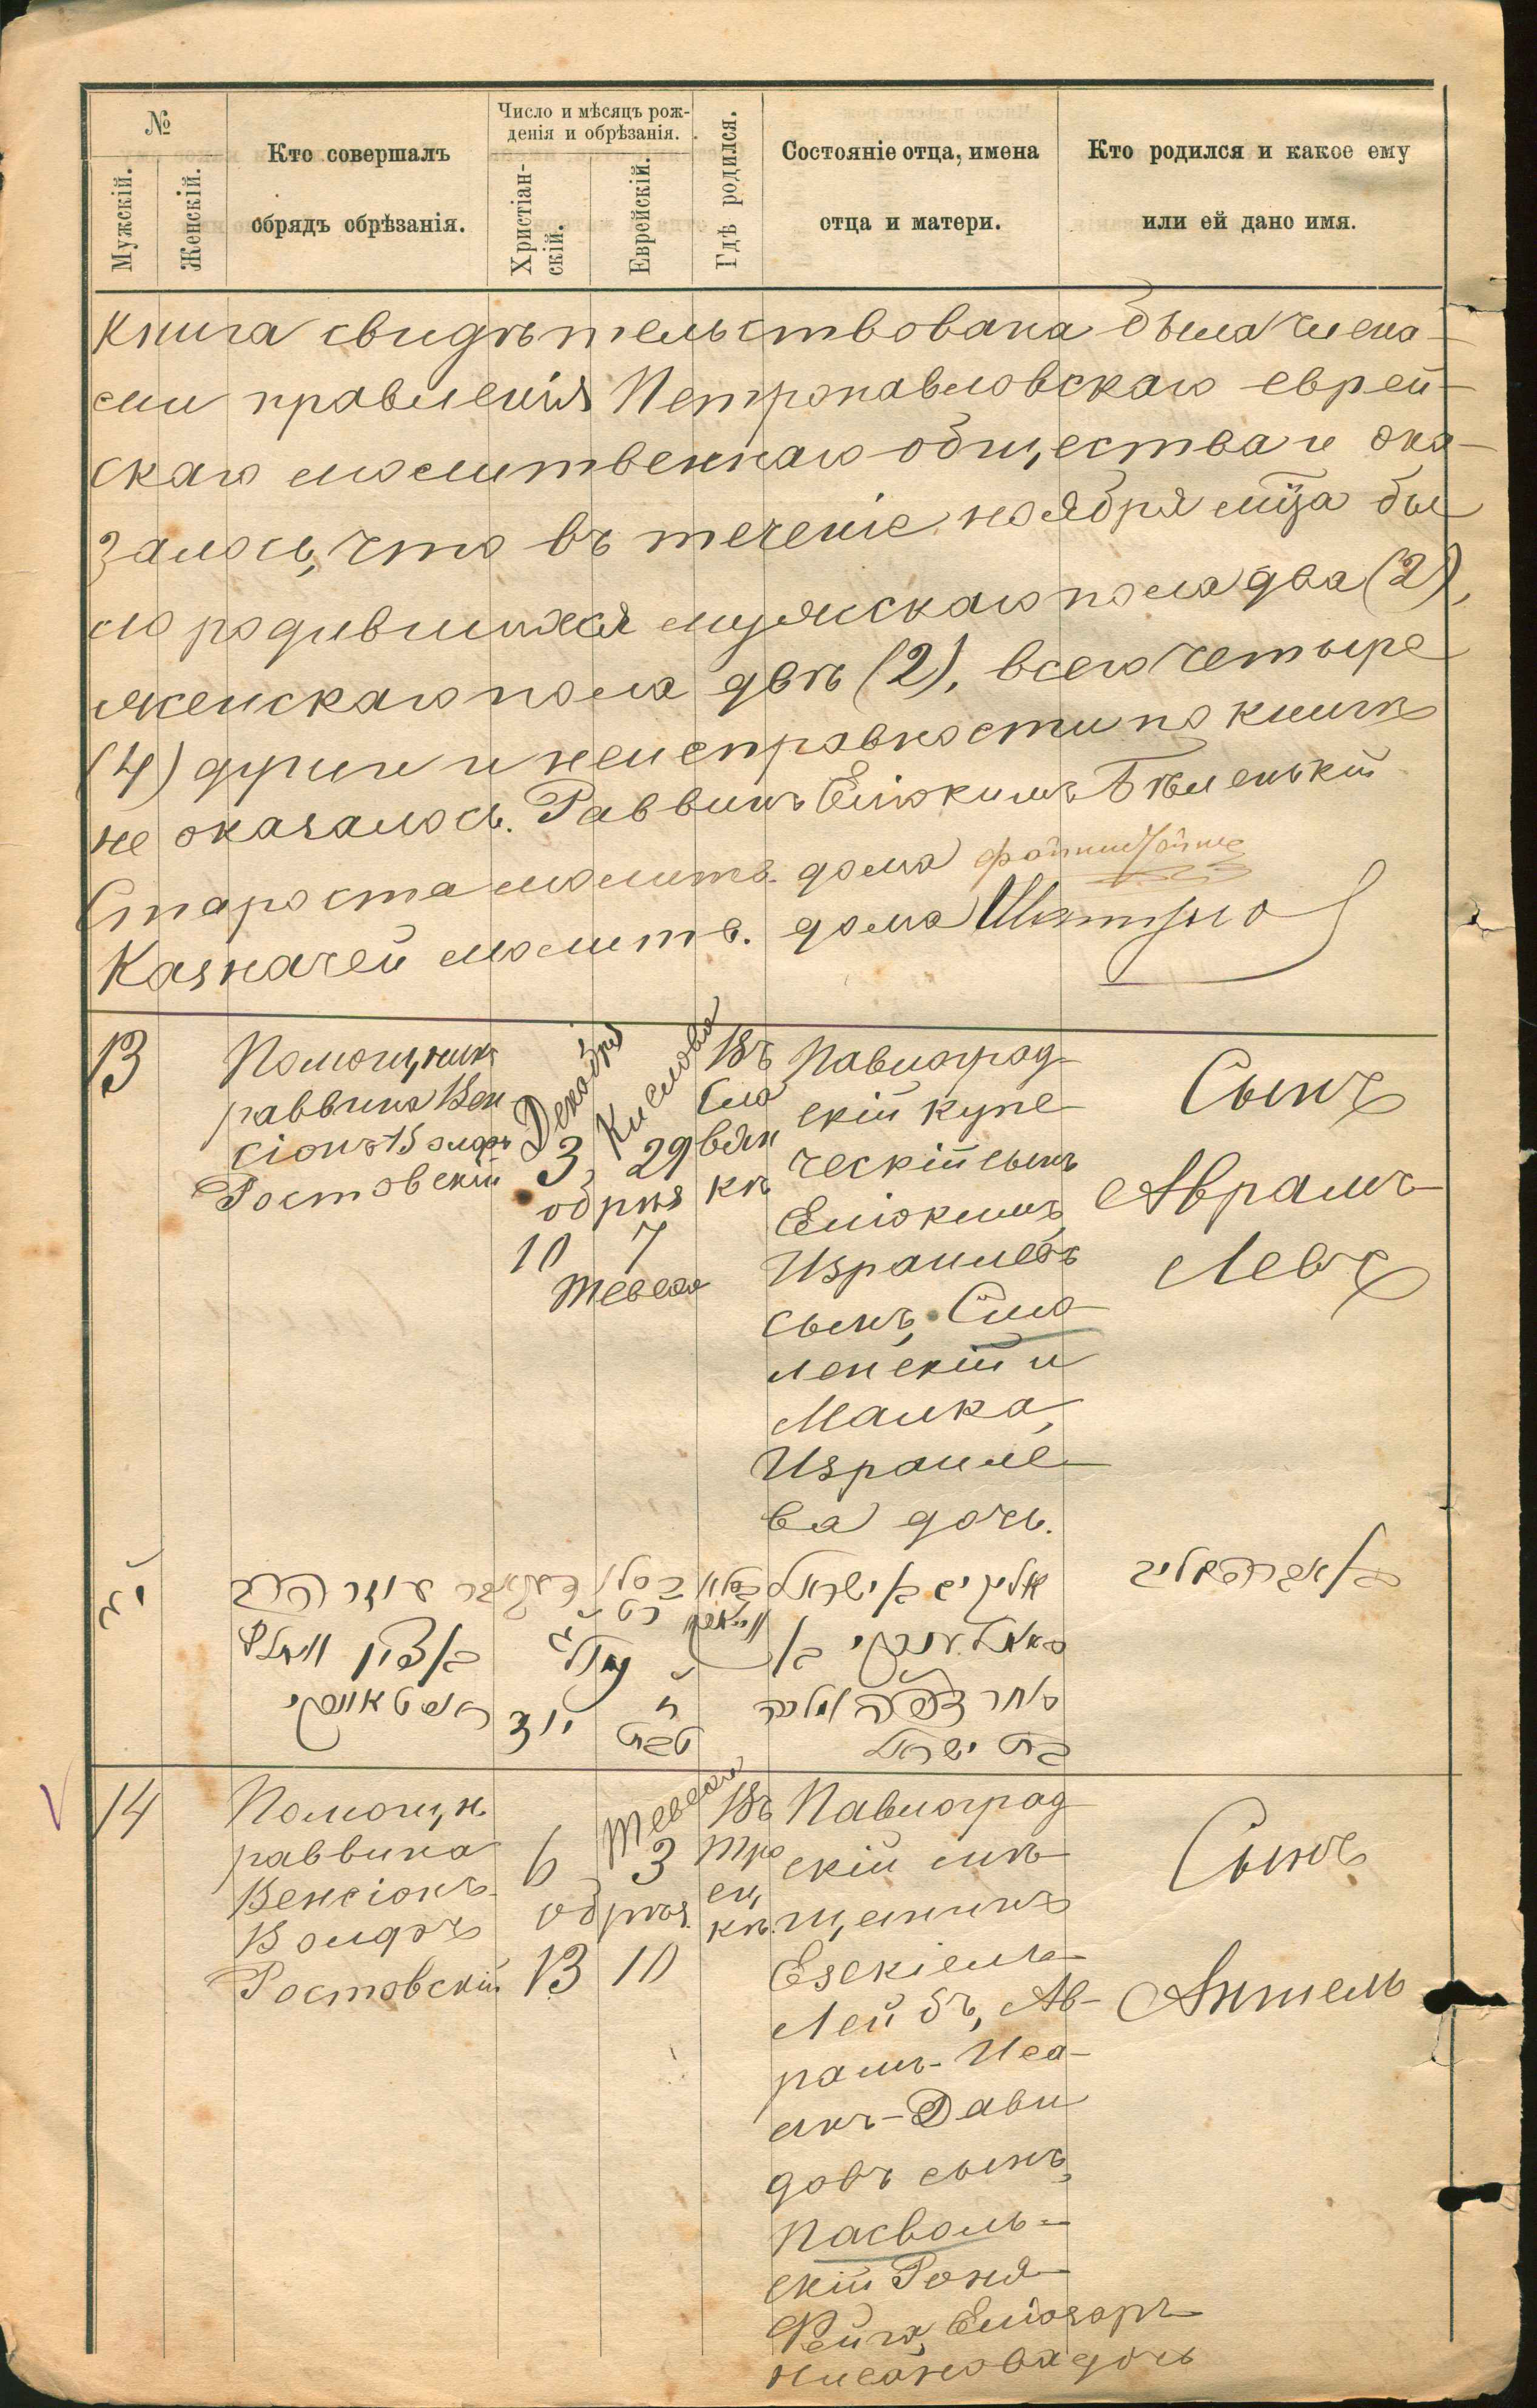 №
Мужскій.
Женскій.
Кто совершалъ
обрядъ обрѣзанія.
Число и мѣсяцъ рож-
денія и обрѣзанія.
Христіан-
скій.
Еврейскій.
Гдѣ родился.
Состояніе отца, имена
отца и матери.
Кто родился и какое ему
или ей дано имя.
Книга свидѣтельствована была члена-
ми правленія Петропавловскаго еврей-
скаго молитвеннаго общества и ока-
залось, что въ теченіе ноября мца бы
ло родившихся мужскаго пола два (2),
женскаго пола двѣ (2), всего четыре
(4) души и неисправности по книгѣ
не оказалось. Раввинъ Еліокимъ Бѣленькій
Староста молитв. дома
Казначей молитв. дома
13
Помощникъ
раввина Вен
сіонъ Вольфъ
Ростовскій
Декабря
3
Кислова
29
обрѣз
10 7
Тевеся
Въ
Сла
вян
кѣ
Павлоград-
скій купе-
ческій сынъ
Еліокимъ
Израилевъ
сынъ, Смо-
ленскій и
Малка,
Израиле-
ва дочь.
Сынъ
Аврамъ-
Левъ
אליקים בן ישראל
בן ציון וואלף
ראסטאווסקי
טבת
בת ישראל
14
Помощн.
раввина
Венсіонъ-
Вольфъ
Ростовскій
6
Тевеся
3
обрѣз.
13 10
Въ
Тро
иц
кѣ.
Павлоград-
скій мѣ-
щанинъ
Езекіель-
Лейбъ, Ав-
рамъ-Иса-
акъ-Дави
довъ сынъ,
Пасволь-
скій Роня-
Фейга, Еліозаръ-
Нисонова дочь
Сынъ
Аншель